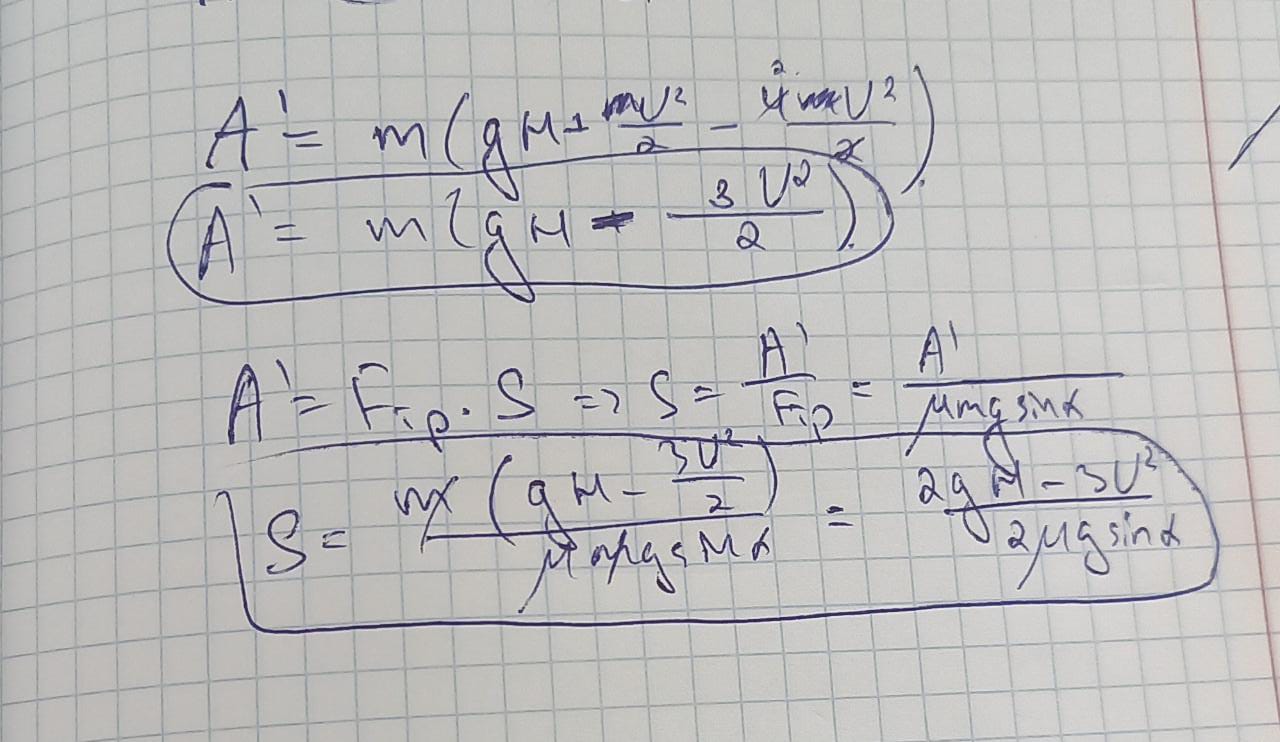 A' = m(gH + mU²/2 - 4mU²/2)
A' = m(gH - 3U²/2).
A' = Fтр · S => S = A'/Fтр = A'/μmg sinα
S = m(gH - 3U²/2)/μmg sinα = 2gH - 3U²/2μg sinα